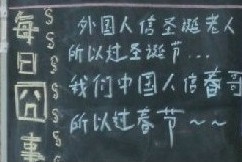 每日囧事
外国人信圣诞老人
所以过圣诞节...
我们中国人信春哥
所以过春节~~